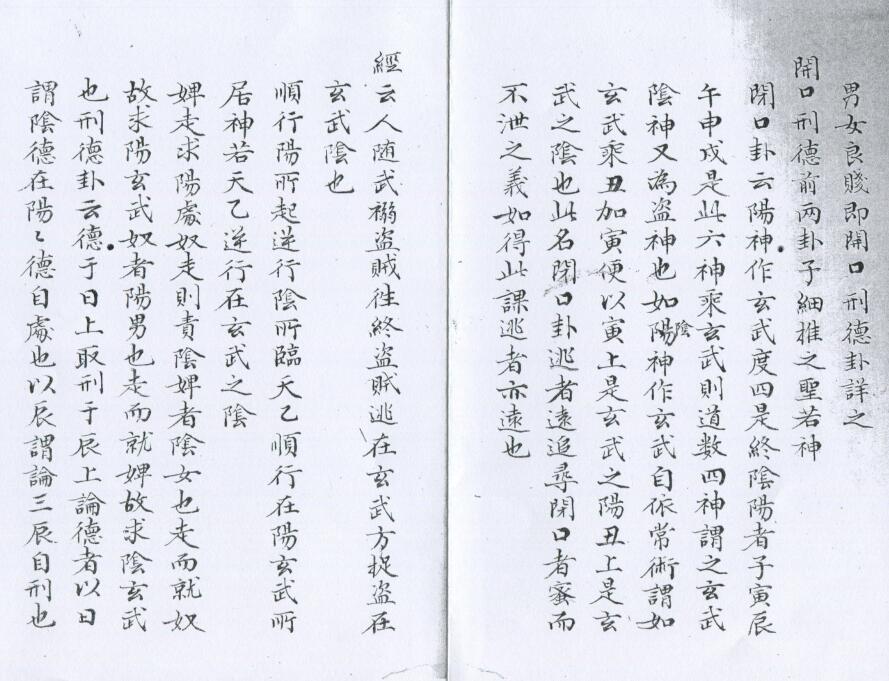 男女良賤即閉口刑德卦詳之
閉口刑德前两卦子細推之聖若神
閉口卦云陽神作玄武度四是終陰陽者子寅辰
午申戌是此六神乘玄武則道数四神謂之玄武
陰神又為盗神也如陽陰神作玄武自依常術謂如
玄武乘丑加寅便以寅上是玄武之陽丑上是玄
武之陰也此名閉口卦逃者遠追尋閉口者蜜而
不泄之義如得此課逃者亦遠也
經云人随武搦盗賊徃終盗賊逃在玄武方捉盗在
玄武陰也
順行陽所起逆行陰所臨天乙順行在陽玄武所
居神若天乙逆行在玄武之陰
婢走求陽處奴走則責陰婢者陰女也走而就奴
故求陽玄武奴者陽男也走而就婢故求陰玄武
也刑德卦云德于日上取刑于辰上論德者以日
謂陰德在陽〻德自處也以辰謂論三辰自刑也